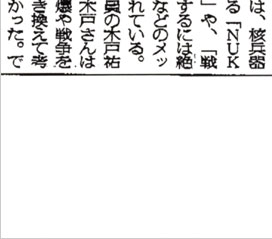 は、核兵器
る「NUK
」や、「戦
するには絶
などのメッ
れている。
員の木戸祐
木戸さんは
爆や戦争を
き換えて考
かった。で